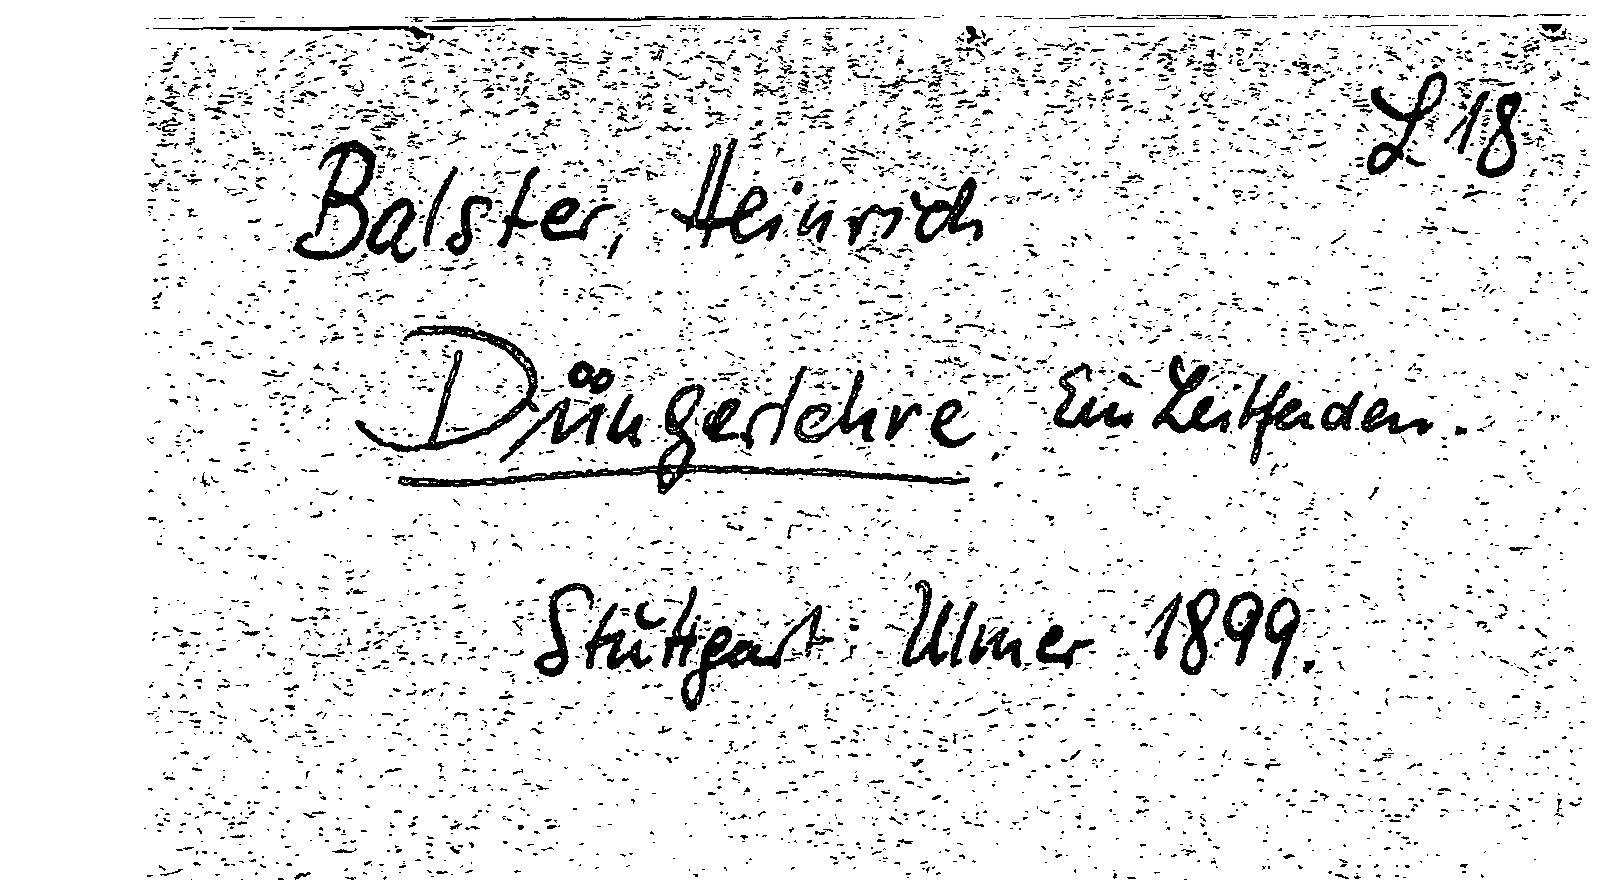 L 18
Balster, Heinrich
Düngerlehre Ein Leitfaden.
Stuttgart: Ulmer 1899.